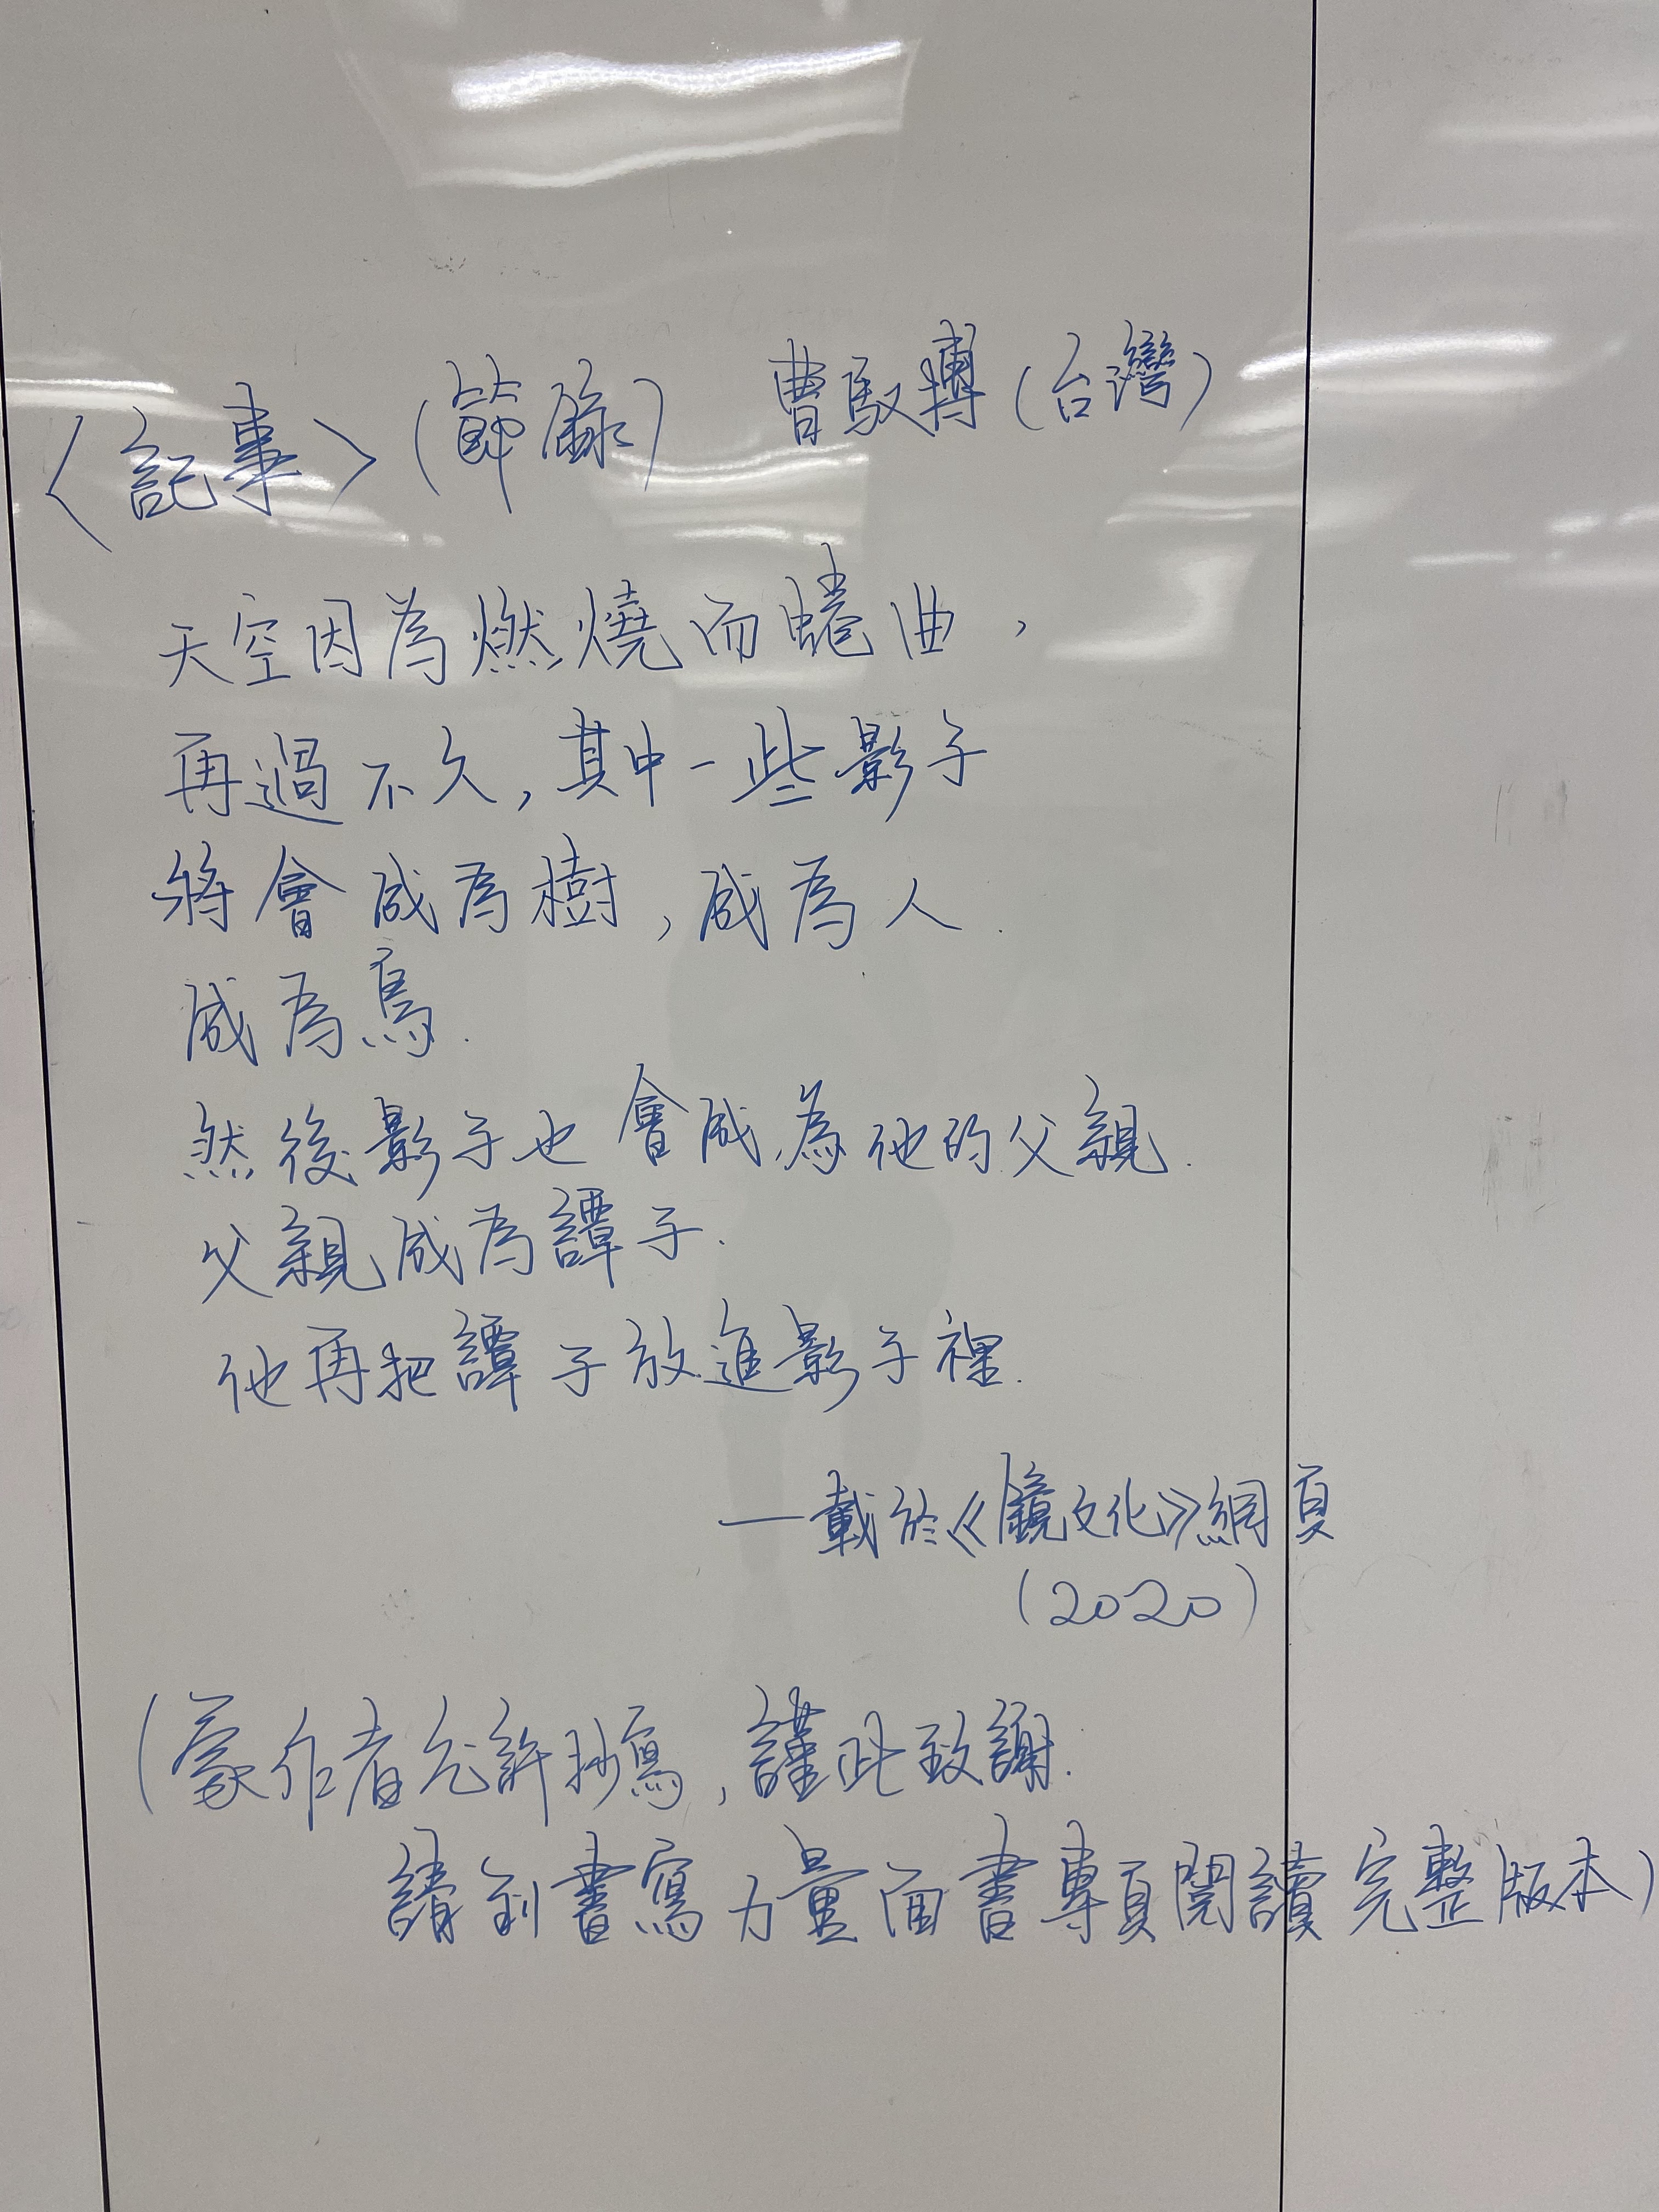 〈記事〉(節錄) 曹馭博(台灣)
天空因為燃燒而蜷曲,
再過不久,其中一些影子
將會成為樹,成為人.
成為鳥.
然後影子也會成為他的父親.
父親成為譚子.
他再把譚子放進影子裡.
—載於《鏡文化》網頁
(2020)
(蒙作者允許抄寫,謹此致謝.
請到書寫力量面書專頁閱讀完整版本)